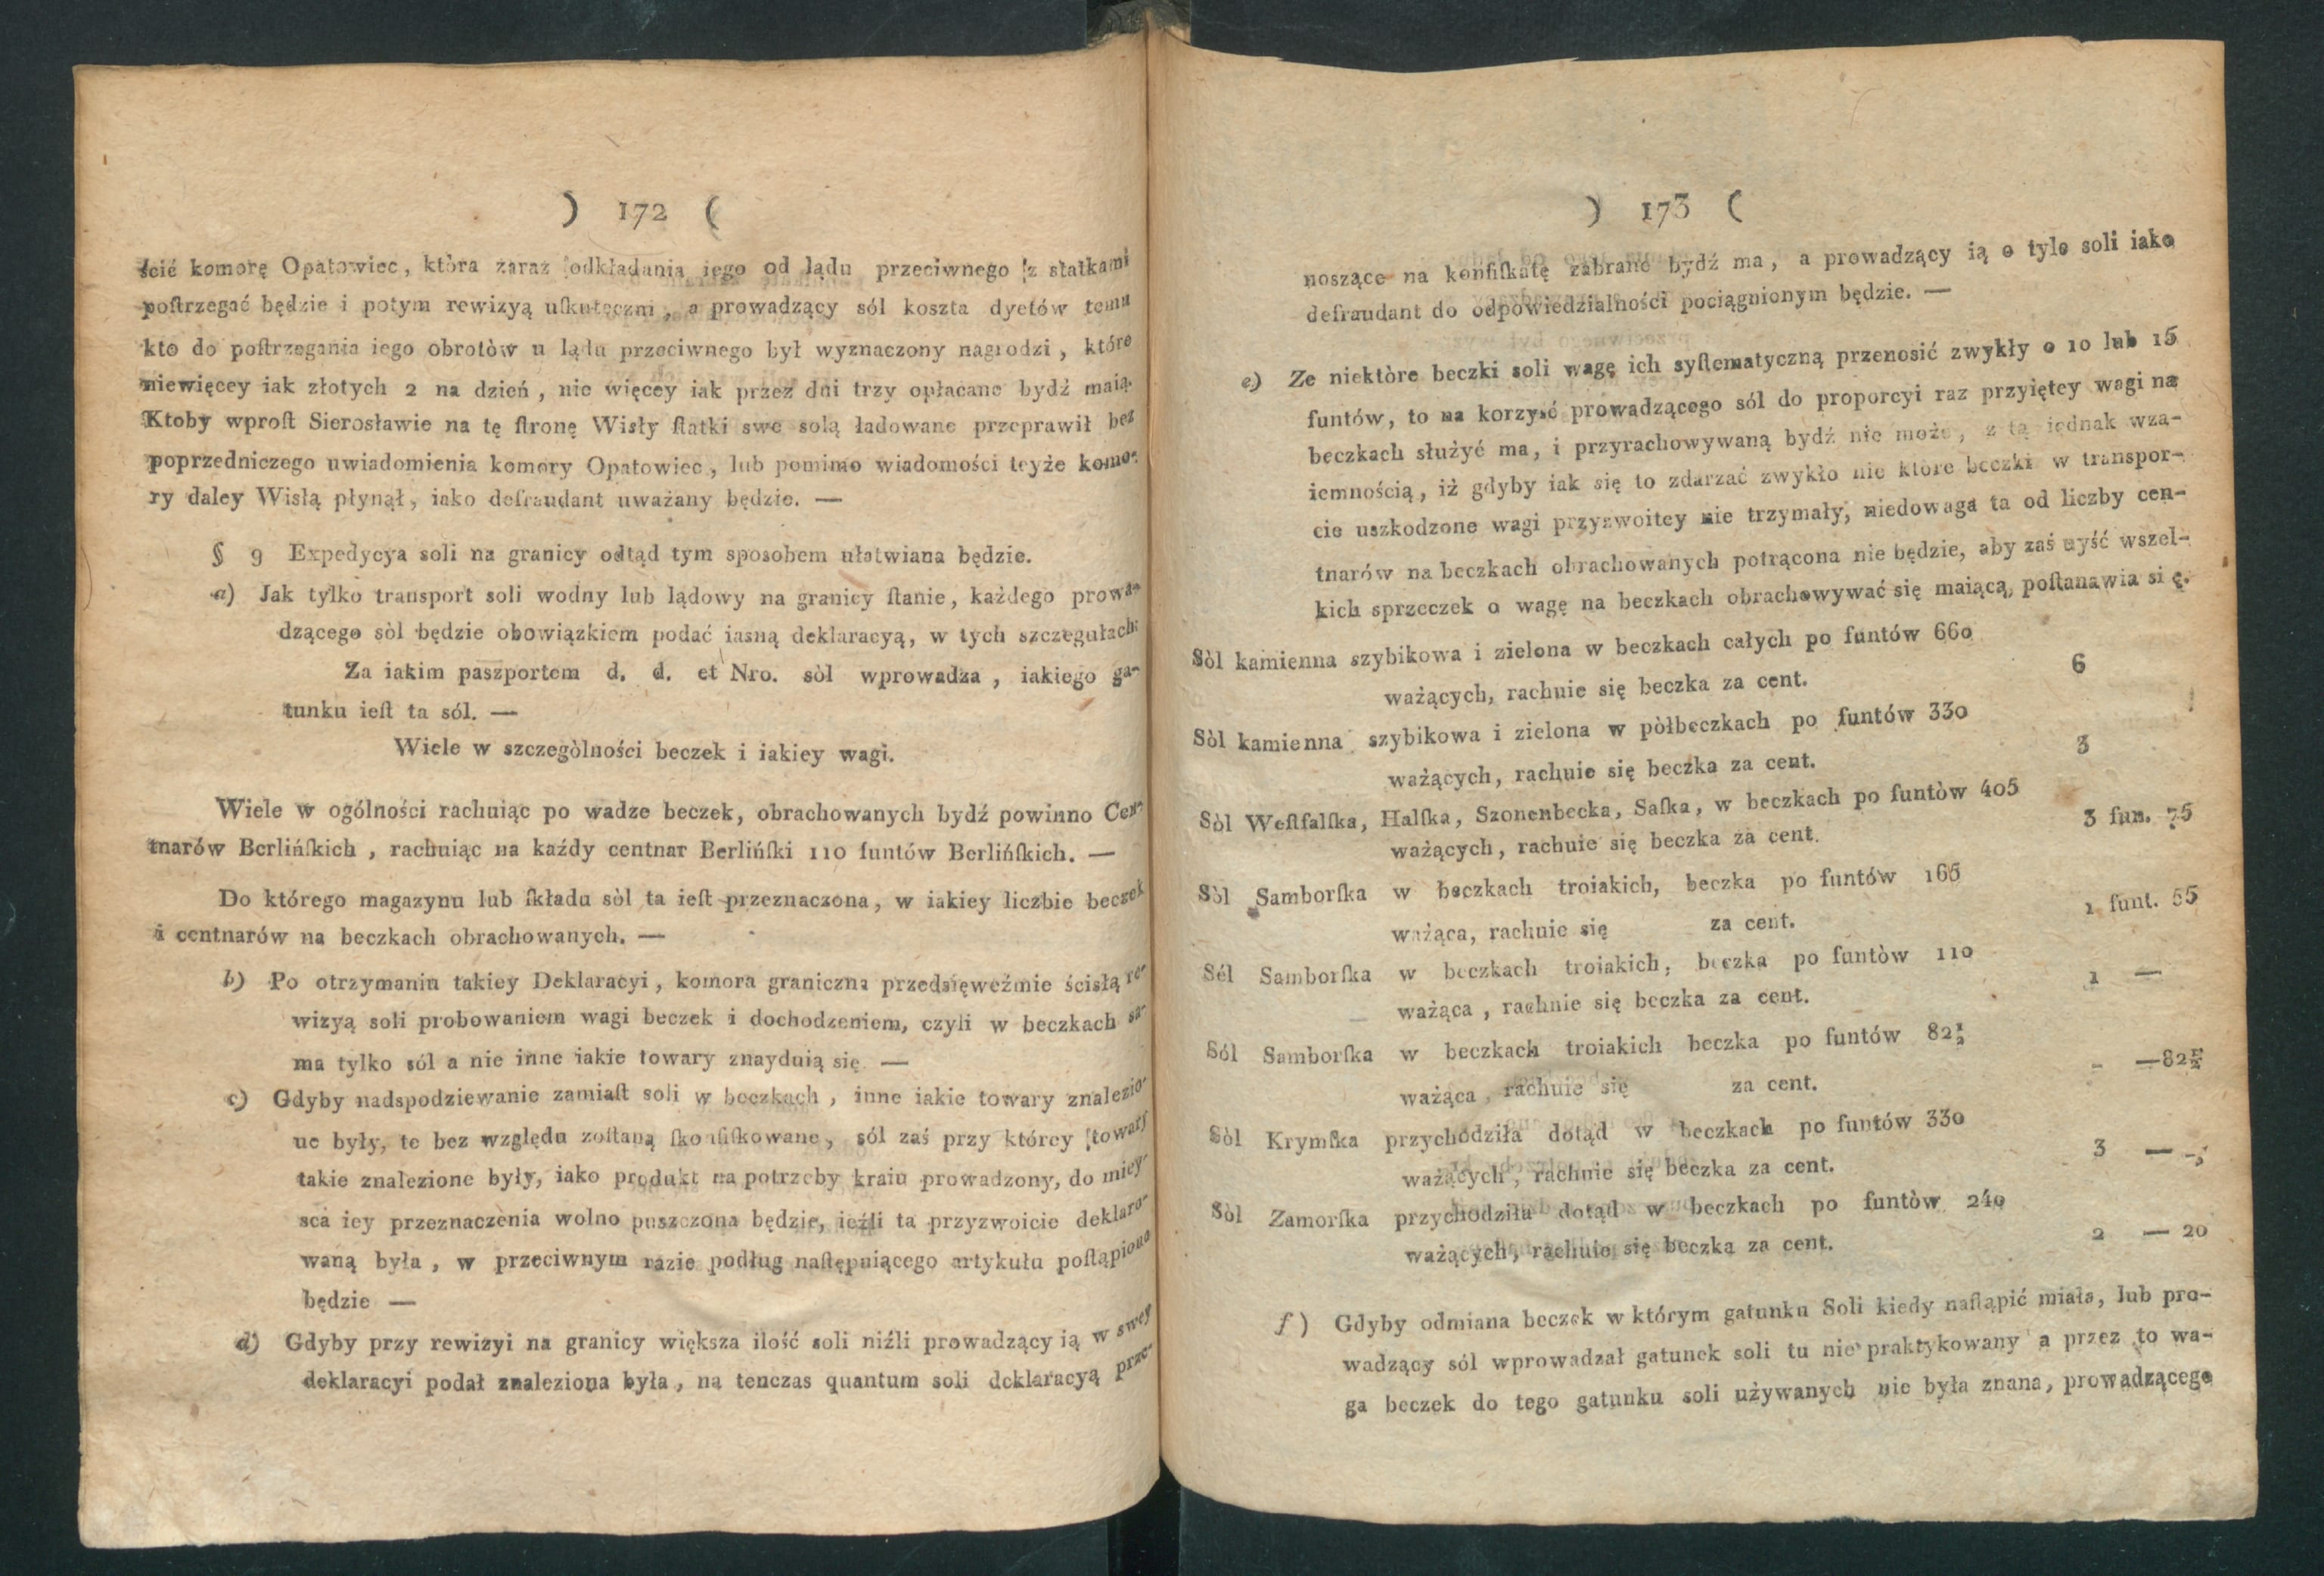 ) 172 (
ścić komorę Opatowiec, ktòra zaraz odkładania iego od lądu przeciwnego z statkami
poſtrzegać będzie i potym rewizyą uſkuteczni, a prowadzący sól koszta dyetów temu
kto do poſtrzegania iego obrotòw u lądu przeciwnego był wyznaczony nagrodzi, które
niewięcey iak złotych 2 na dzień, nie więcey iak przez dni trzy opłacane bydź maią.
Ktoby wproſt Sierosławie na tę ſtronę Wisły ſtatki swe solą ładowane przeprawił bez
poprzedniczego uwiadomienia komory Opatowiec, lub pomimo wiadomości teyże komo-
ry daley Wisłą płynął, iako defraudant uważany będzie. —
§ 9 Expedycya soli na granicy odtąd tym sposobem ułatwiana będzie.
a) Jak tylko transport soli wodny lub lądowy na granicy ſtanie, każdego prowa-
dzącego sòl będzie obowiązkiem podać iasną deklaracyą, w tych szczegułach:
Za iakim paszportem d. d. et Nro. sòl wprowadza, iakiego ga-
tunku ieſt ta sól. —
Wiele w szczegòlności beczek i iakiey wagi.
Wiele w ogólności rachuiąc po wadze beczek, obrachowanych bydź powinno Cen-
tnarów Berlińſkich, rachuiąc na każdy centnar Berlińſki 110 funtów Berlińſkich. —
Do którego magazynu lub ſkładu sòl ta ieſt przeznaczona, w iakiey liczbie beczek
i centnarów na beczkach obrachowanych. —
b) Po otrzymaniu takiey Deklaracyi, komora graniczna przedsięweźmie ścisłą re-
wizyą soli probowaniem wagi beczek i dochodzeniem, czyli w beczkach sa-
ma tylko sól a nie inne iakie towary znayduią się —
c) Gdyby nadspodziewanie zamiaſt soli w beczkach, inne iakie towary znalezio-
ne były, te bez względu zoſtaną ſkonfiſkowane, sól zaś przy którey towary
takie znalezione były, iako produkt na potrzeby kraiu prowadzony, do miey-
sca iey przeznaczenia wolno puszczona będzie, ieźli ta przyzwoicie deklaro-
waną była, w przeciwnym razie podług naſtępuiącego artykułu poſtąpiono
będzie —
d) Gdyby przy rewizyi na granicy większa ilość soli niźli prowadzący ią w swey
deklaracyi podał znaleziona była, na tenczas quantum soli deklaracyą prze-
) 173 (
noszące na konfiſkatę zabrane bydź ma, a prowadzący ią o tyle soli iako
defraudant do odpowiedzialności pociągnionym będzie. —
e) Ze niektòre beczki soli wagę ich syſtematyczną przenosić zwykły o 10 lub 15
funtów, to na korzyść prowadzącego sól do proporcyi raz przyiętey wagi na
beczkach służyć ma, i przyrachowywaną bydź nie może, z tą iednak wza-
iemnością, iż gdyby iak się to zdarzać zwykło nie które beczki w transpor-
cie uszkodzone wagi przyzwoitey nie trzymały, niedowaga ta od liczby cen-
tnarów na beczkach obrachowanych potrącona nie będzie, aby zaś uyść wszel-
kich sprzeczek o wagę na beczkach obrachowywać się maiącą, poſtanawia się.
Sòl kamienna szybikowa i zielona w beczkach całych po funtów 660
ważących, rachuie się beczka za cent. 6
Sòl kamienna szybikowa i zielona w pòłbeczkach po funtów 330
ważących, rachuie się beczka za cent. 3
Sòl Weſtfalſka, Halſka, Szonenbecka, Saſka, w beczkach po funtòw 405
ważących, rachuie się beczka za cent. 3 fun. 75
Sòl Samborſka w beczkach troiakich, beczka po funtów 165
ważąca, rachuie się za cent. 1 funt. 55
Sól Samborſka w beczkach troiakich, beczka po funtòw 110
ważąca, rachuie się beczka za cent. 1 —
Sól Samborſka w beczkach troiakich beczka po funtów 82½
ważąca, rachuie się za cent. - —82½
Sòl Krymſka przychódziła dotąd w beczkach po funtów 330
ważących, rachuie się beczka za cent. 3 — -
Sòl Zamorſka przychodziła dotąd w beczkach po funtòw 240
ważących, rachuie się beczka za cent. 2 — 20
f) Gdyby odmiana beczek w którym gatunku Soli kiedy naſtąpić miała, lub pro-
wadzący sól wprowadzał gatunek soli tu nie praktykowany a przez to wa-
ga beczek do tego gatunku soli używanych nie była znana, prowadzącego